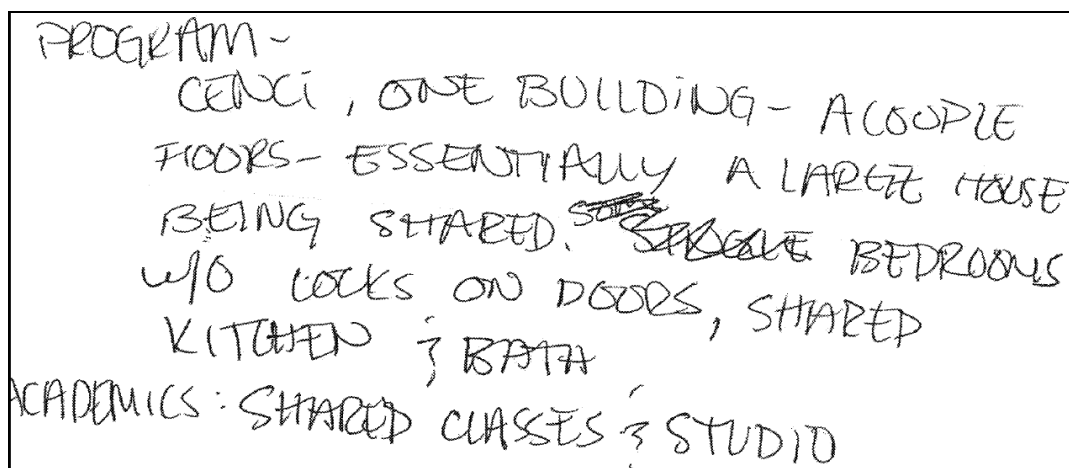 PROGRAM-
CENCi, ONE BUILDiNG- A COUPLE
FLOORS- ESSENTIALLY A LARGE HOUSE
BEING SHARED. BEDROOMS
w/o LOCKS ON DOORS, SHARED
KITCHEN & BATH
ACADEMICS: SHARED CLASSES & STUDIO